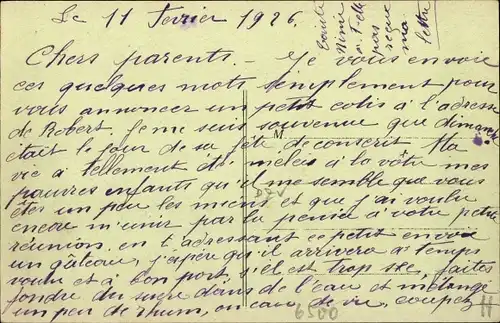 Le 11 Fevrier 1926.
Chers parents. - Je vous envoie
ces quelques mots simplement pour
vous annoncer un petit colis à l'adresse
de Robert. Je me suis souvenue que dimanche
était le jour de sa fête de conscrit. Ma
vie a tellement été mêlée à la vôtre mes
pauvres enfants qu'il me semble que vous
êtes un peu les miens et que j'ai voulu
encore m'unir par la pensée à votre petite
réunion, en t adressant ce petit envoi
un gâteau, j'espère qu'il arrivera à temps
voulu et à bon port, s'il est trop sec, faites
fondre du sucre dans de l'eau et mélangé
un peu de rhum, ou eau de vie, coupez
pas
reçue
ma
lettre
M
6500